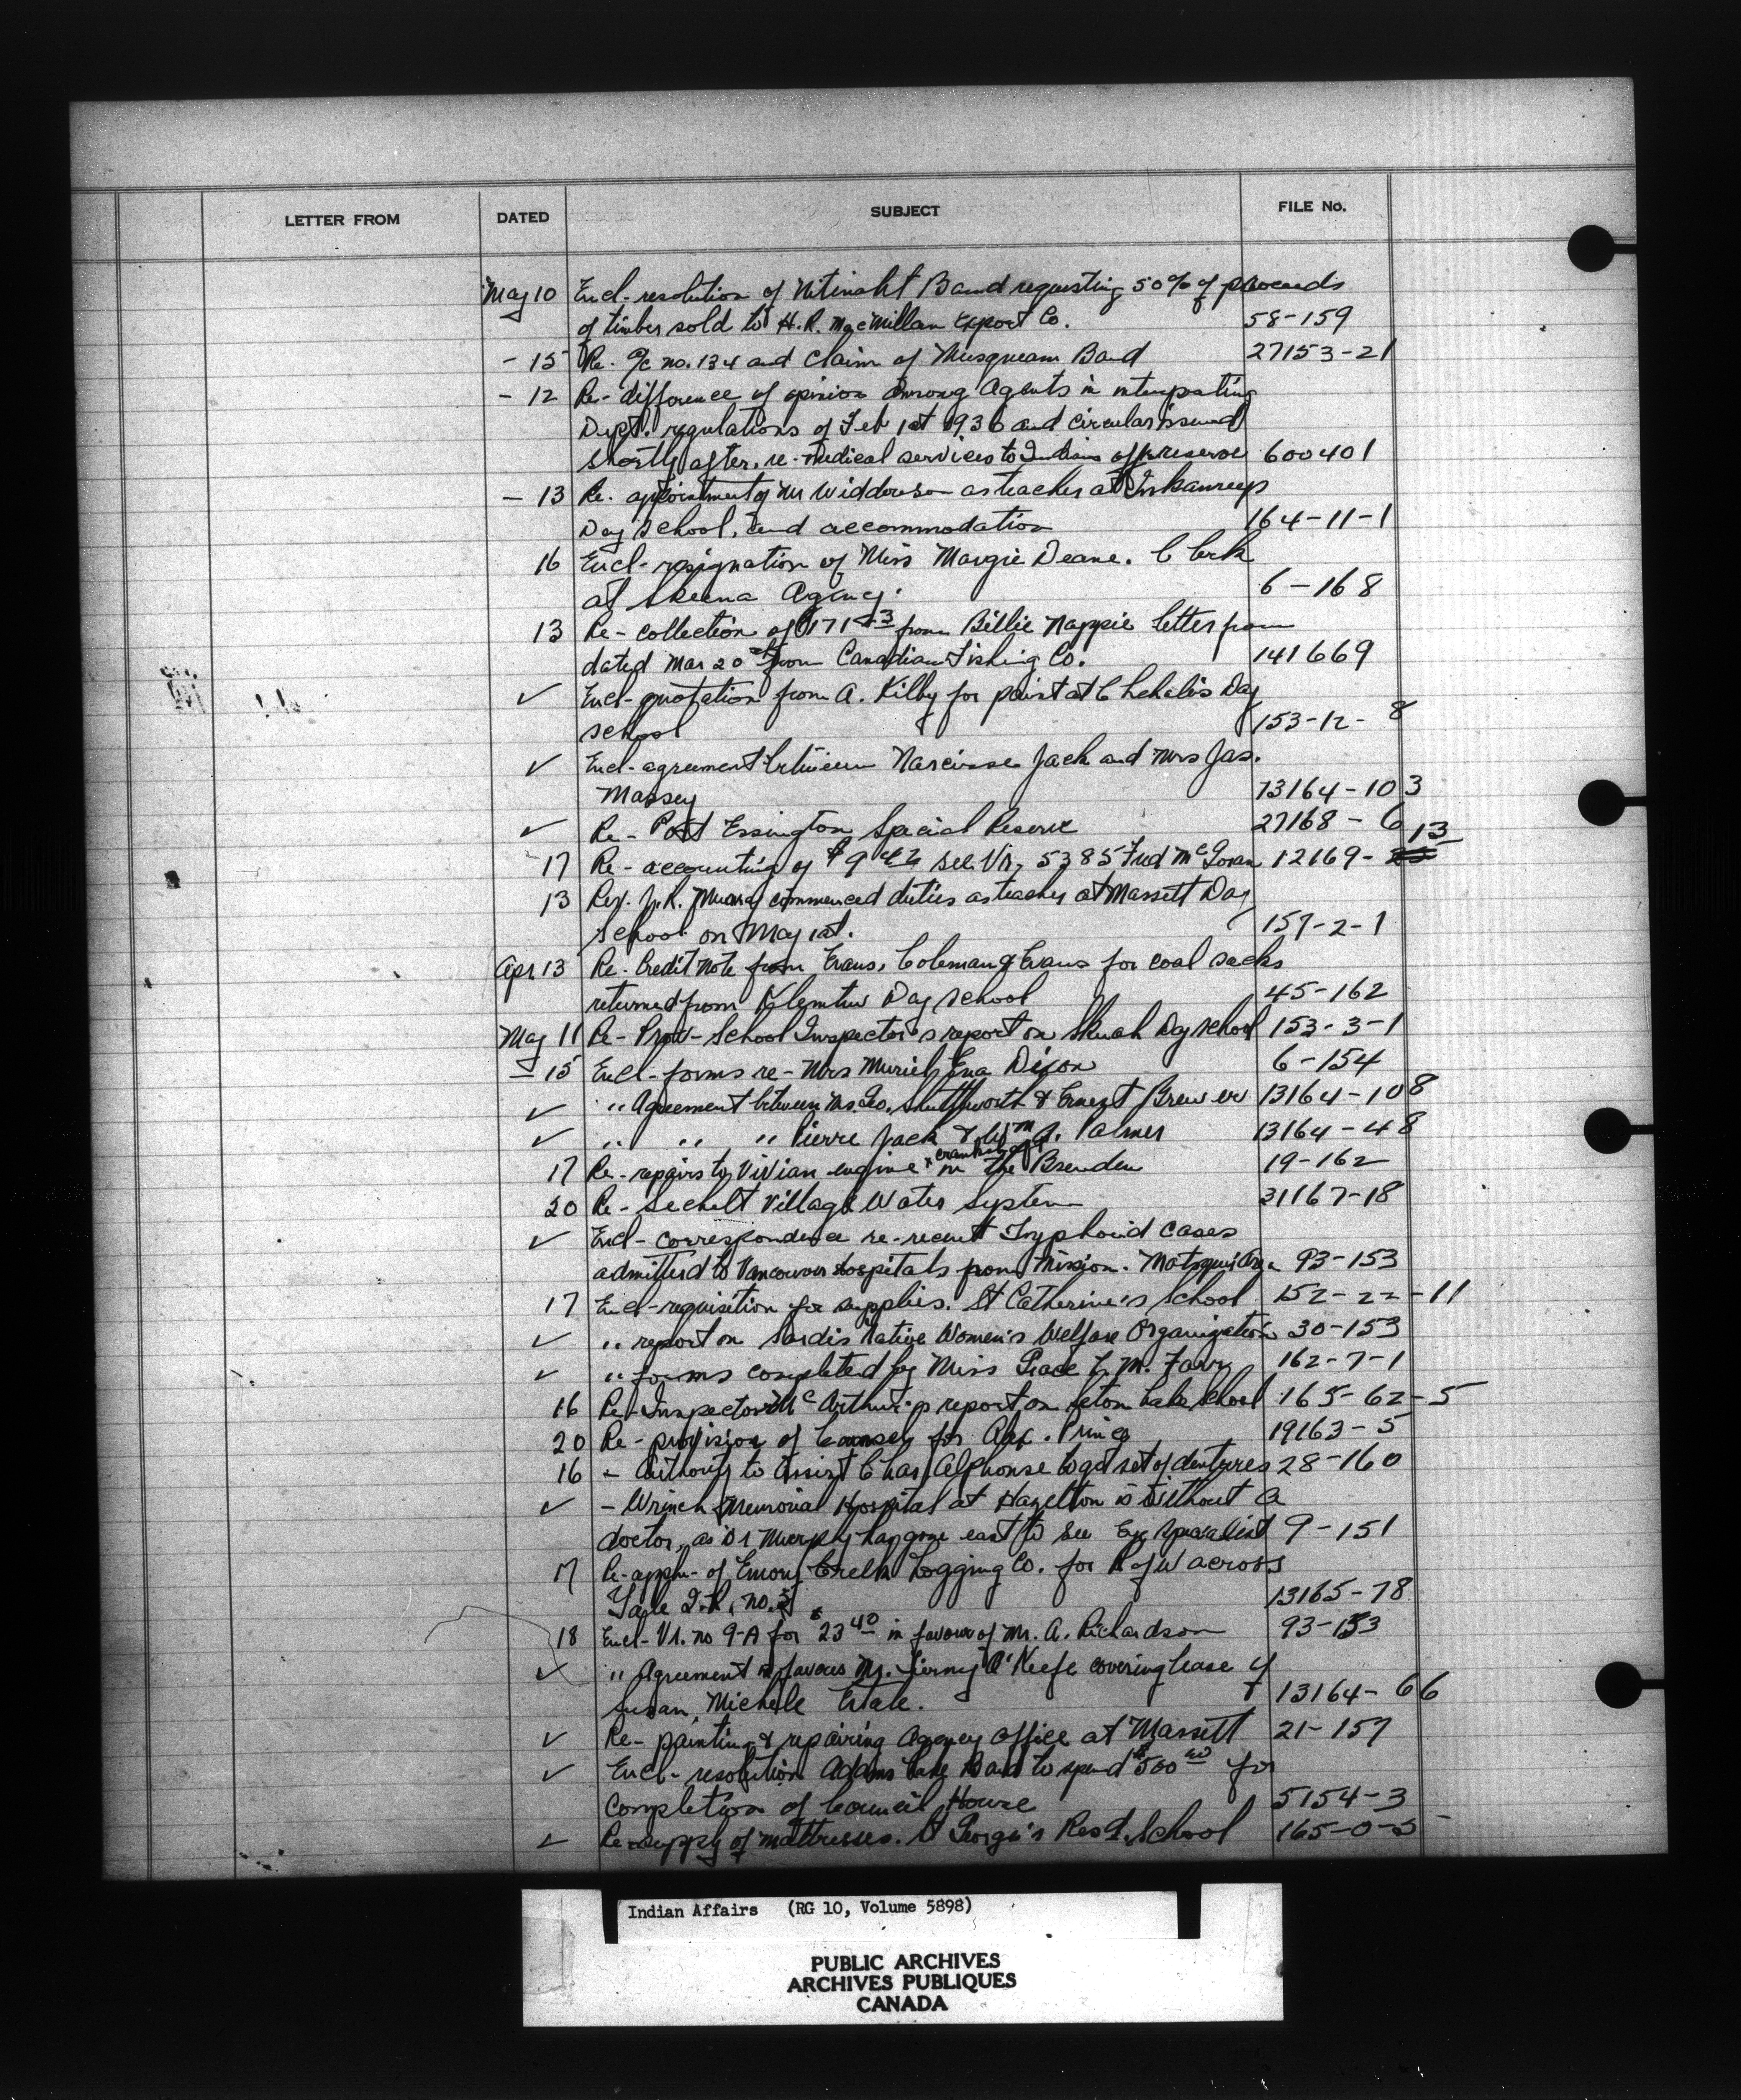 LETTER FROM DATED SUBJECT FILE No.
May 10 Encl- resolution of Nitinaht Band requesting 50% of proceeds
of timber sold to H.R. MacMillan Export Co. 58-159
- 15 Re. a/c no. 134 and Claim of Musqueam Band 27153-21
- 12 Re- difference of opinion among Agents in interpreting
Dept. regulations of Feb 1st 1936 and circular issued
shortly after, re- medical services to Indians off reserve 600401
- 13 Re. appointment of Mr Widdowson as teacher at Inkameep
Day School, and accommodation 164-11-1
16 Encl- resignation of Miss Margie Deane. Clerk
at Skeena Agency. 6-168
13 Re- collection of from Billie Nappie letter from
dated Mar 20th from Canadian Fishing Co. 141669
✓ Encl- quotation from A. Kilby for paint at Chehalis Day
school 153-12-8
✓ Encl- agreement between Narcisse Jack and Mrs Jas.
Massey 13164-103
✓ Re- Port Essington Special Reserve 27168-6
17 Re- accounting of see Vr. 5385 Fred McGoran 12169-13
13 Rev. commenced duties as teacher at Massett Day
school on May 1st. 157-2-1
Apr 13 Re- Credit Note from Evans, Coleman & Evans for coal sacks
returned from Klemtu Day School 45-162
May 11 Re- Prov- School Inspector's report on Skuah Day School 153-3-1
- 15 Encl- forms re- Mrs Muriel Ena Dixon 6-154
✓ " Agreement between Mr Geo. Shuttleworth & Ernest Brewer 13164-108
✓ " " " Pierre Jack & Wm A. Palmer 13164-48
17 Re- repairs to Vivian engine x crankshaft in the Brenden 19-162
20 Re- Sechelt Village Water System 31167-18
✓ Encl- correspondence re- recent Typhoid cases
admitted to Vancouver Hospitals from Mission. Matsqui Area 93-153
17 Encl- requisition for supplies. St Catherine's School 152-22-11
✓ " report on Sardis Native Women's Welfare Organization 30-153
✓ " forms completed by Miss Grace L. M. Farr 162-7-1
16 Re- Inspector McArthur's report on Seton Lake School 165-62-5
20 Re- provision of Counsel for Alex. Prince 19163-5
16 - Authority to assist Chas Alphonse to get set of dentures 28-160
✓ - Wrinch Memorial Hospital at Hazelton is without a
doctor, as Dr Murphy has gone east to see Eye specialist 9-151
17 Re- appln- of Emory Creek Logging Co. for R of W across
Yale I.R. no. 13165-78
18 Encl- Vr. no 9-A for $23 40 in favour of Mr. A. Richardson 93-153
✓ " Agreement in favour Mr. Tierny O'Keefe covering lease of
Susan Michele Estate. 13164-66
✓ Re- painting & repairing Agency Office at Massett 21-157
✓ Encl- resolution Adams Lake Band to spend $500 00 for
completion of Council House 5154-3
✓ Re- supply of mattresses. St George's Resd. School 165-0-5
Indian Affairs (RG 10, Volume 5898)
PUBLIC ARCHIVES
ARCHIVES PUBLIQUES
CANADA